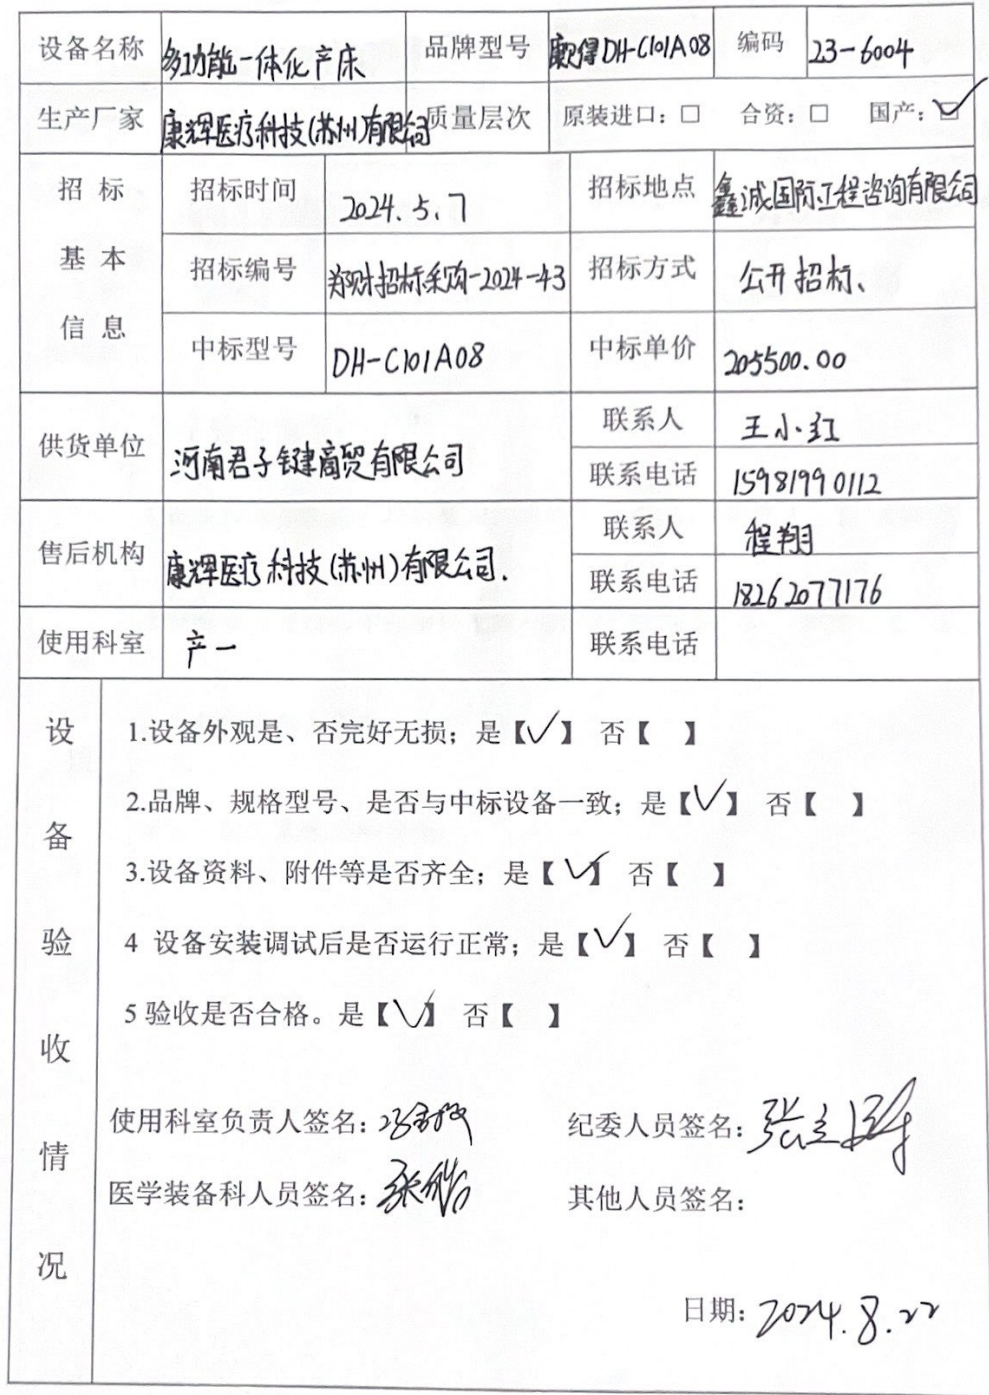 设备名称 多功能一体化产床 品牌型号 康得DH-C101A08 编码 23-6004
生产厂家 康辉医疗科技(苏州)有限公司 质量层次 原装进口：□ 合资：□ 国产：☑
招标 招标时间 2024.5.7 招标地点 鑫诚国际工程咨询有限公司
基本 招标编号 郑财招标采购-2024-43 招标方式 公开招标、
信息 中标型号 DH-C101A08 中标单价 205500.00
供货单位 河南君子健商贸有限公司 联系人 王小红
联系电话 15981990112
售后机构 康辉医疗科技(苏州)有限公司. 联系人 程翔
联系电话 18262077176
使用科室 产一 联系电话
设备验收情况
1.设备外观是、否完好无损；是【✓】 否【 】
2.品牌、规格型号、是否与中标设备一致；是【✓】 否【 】
3.设备资料、附件等是否齐全；是【✓】 否【 】
4 设备安装调试后是否运行正常；是【✓】 否【 】
5 验收是否合格。是【✓】 否【 】
使用科室负责人签名： 纪委人员签名：
医学装备科人员签名： 其他人员签名：
日期：2024.8.22